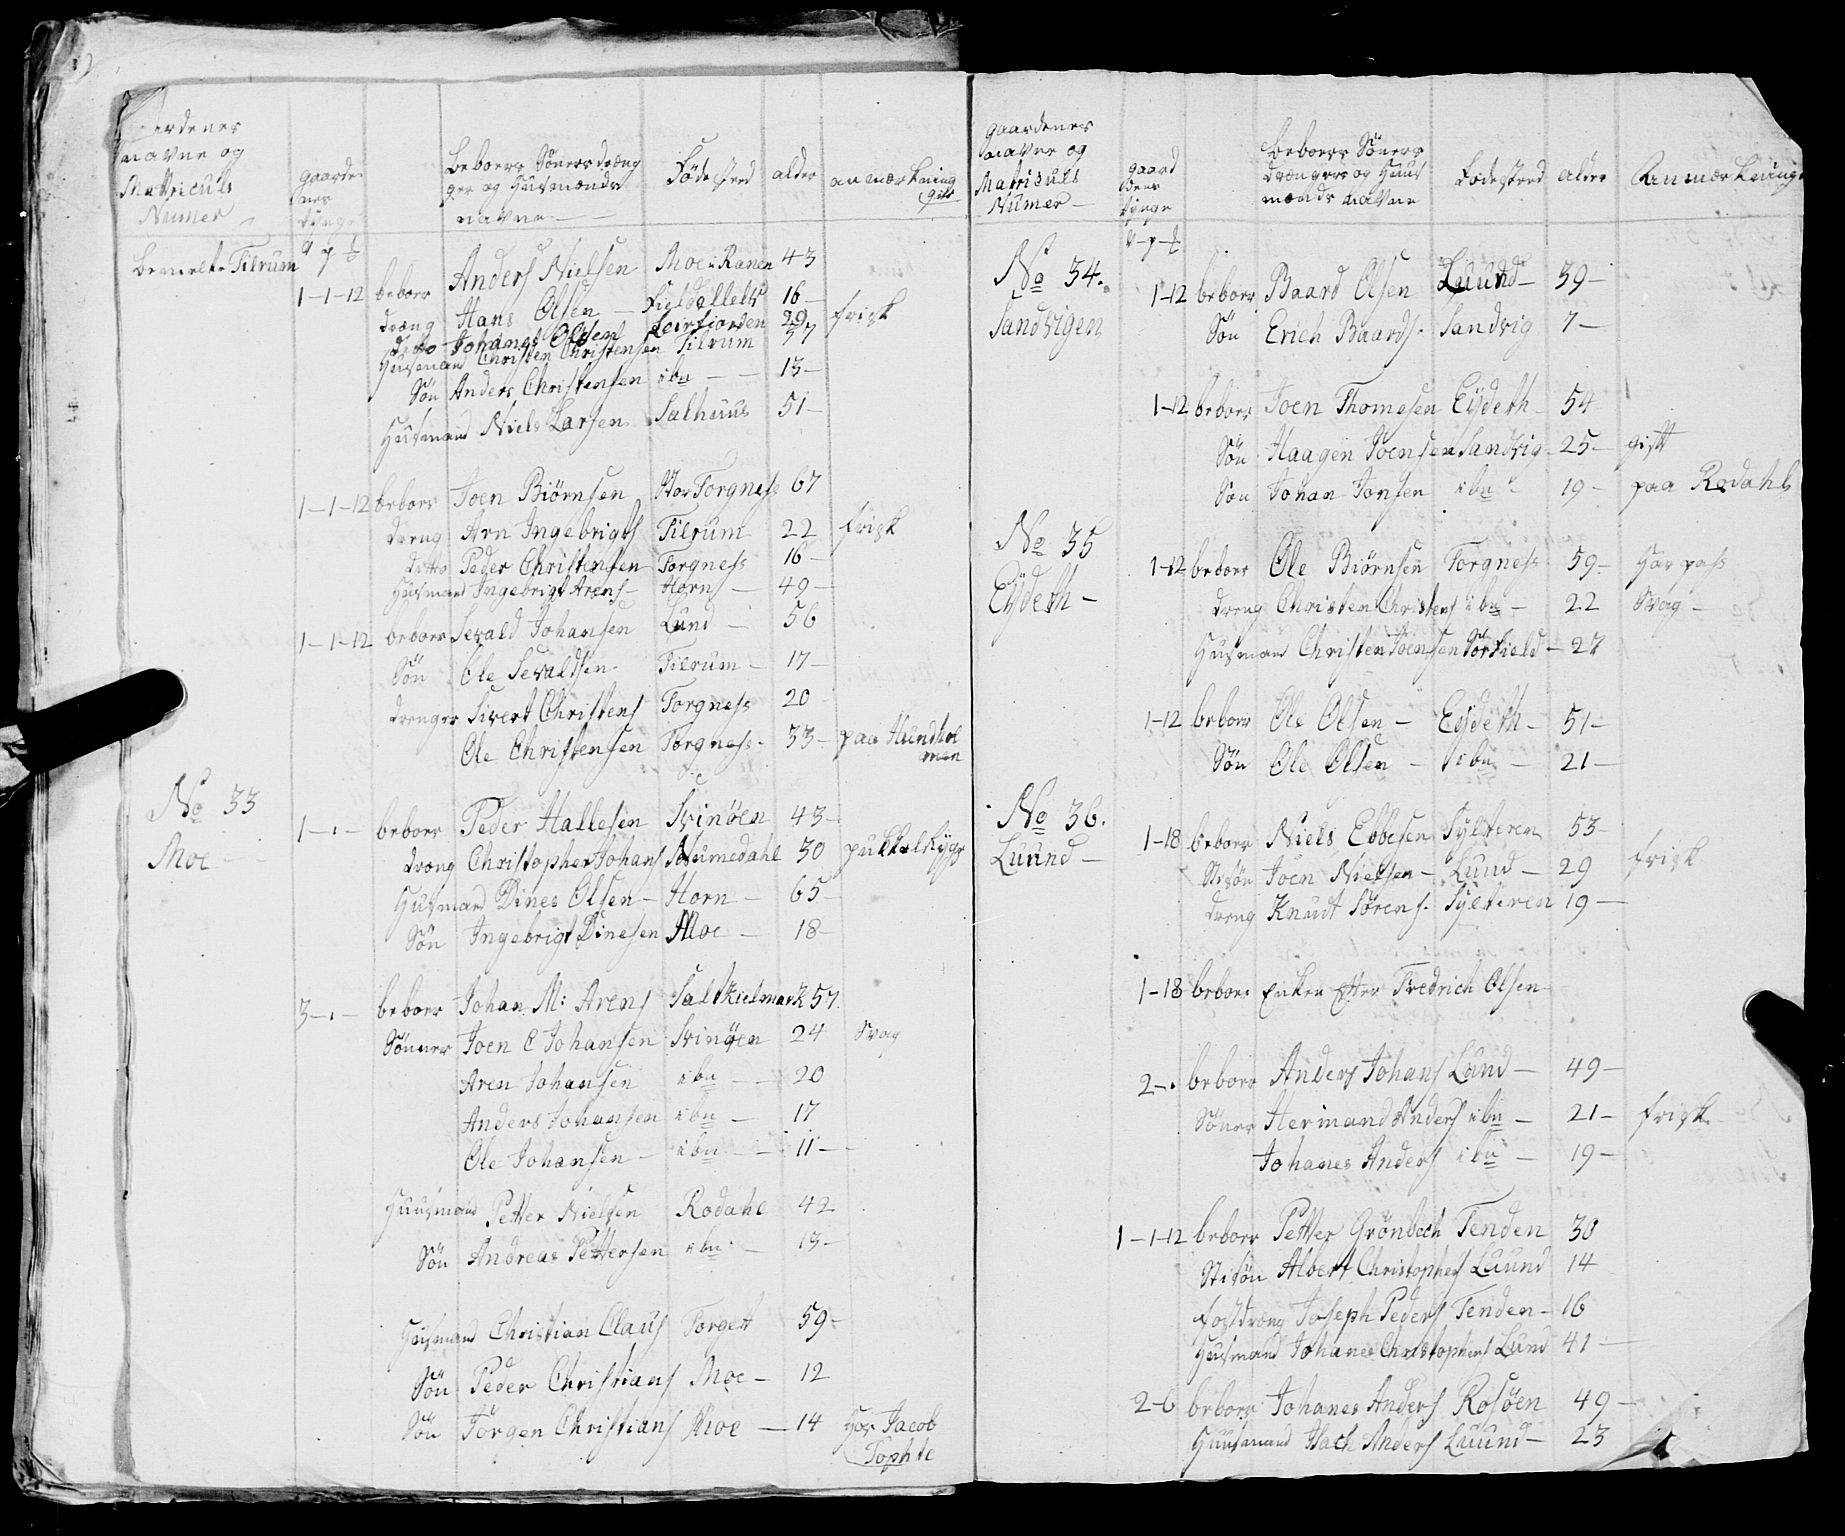 Gaardenes
navne og
Matriculs
Numer
gaarde
nes
tynge
V p ℔
beboers Søners dræng
ger og Huusmænds
navne
Födested
alder
anmærkning
gift
bemelte Tilrum
1-1-12 beboer Anders Nielsen Moe i Ranen 43
dræng Hans Olsen - 16 - frisk
ditto Johanes Olsen Leirfiorden 29
Huusmand Christen Christensen Tilrum 57
Søn Anders Christensen ibn - 13 -
Huusmand Niels Larsen Salhuus 51 -
1-1-12 beboer Joen Biørnsen Stor Torgness 67
dreng Arn Ingebrigts Tilrum 22 frisk
ditto Peder Christensen Torgness 16 -
Husmand Ingebrigt Arens - Horn - 49 -
1-1-12 beboer Sevald Johansen Lund - 56
Søn Ole Sevaldsen - Tilrum - 17 -
drenger Sivert Christens Torgness 20
Ole Christensen Torgness - 33 - paa Hundhol
men
No 33
Moe
1 - · - beboer Peder Hallesen Svinöen 43 -
dræng Christopher Johans Numedahl 30 pukkelrygg
Husmand Dines Olsen - Horn - 65 -
Søn Ingebrigt Dinesen Moe - 18 -
3 - · - beboer Johan M: Arens Saltkielmark 57
Sønner Joen C Johansen Svinøen 24 svag
Aren Johansen ibn - 20
Anders Johansen ibn - 17
Ole Johansen - ibn - 11 -
Huusmand Petter Nielsen Rodahl 42
Søn Andreas Pettersen ibn - 13 -
Huusmand Christian Claus Torgett 59 -
Søn Peder Christians Moe - 12
Søn Jörgen Christians Moe - 14 hos Jacob
Tophte
gaardenes
navne og
Matriculs
Numer -
gaard
denes
tynge
V - p - ℔
beboers Søners
drengers og Huus
mænds navne
Födested
alder
Anmærkning
No 34.
Sandvigen
1-12 beboer Baard Olsen Luund - 39 -
Søn Erich Baards - Sandvig 7 -
1-12 beboer Joen Thomesen Eydeth - 54
Søn Haagen Joensen Sandvig - 25 - gift
Søn Johan Jonsen ibn - 19 - paa Rodahl
No 35
Eydeth -
1-12 beboer Ole Biørnsen Torgness 59 - har pass
dreng Christen Christens ibn - 22 svag -
Husmand Christen Joensen Sörfield - 27
1-12 beboer Ole Olsen - Eydeth - 51 -
Søn Ole Olsen - ibn - 21 -
No 36.
Luund -
1-18 beboer Niels Ebbesen Sylteren 53 -
Stisøn Joen Nielsen - Lund - 29 frisk
dreng Knudt Sörens - Sylteren 19 -
1-18 beboer Enken Efter Fredrich Olsen -
2 - · beboer Anders Johans Lund - 49 -
Søner Hermand Anders ibn - 21 - frisk -
Johanes Anders ibn - 19 -
1-1-12 beboer Petter Grönbech Tenden 30
Stisøn Albert Christophers Luund 14
fostdreng Joseph Peders Tenden - 16
Husmand Johanes Christophers Lund 41 -
2-6 beboer Johanes Anders Rosöen 49 -
Huusmand Anders Luund - 23